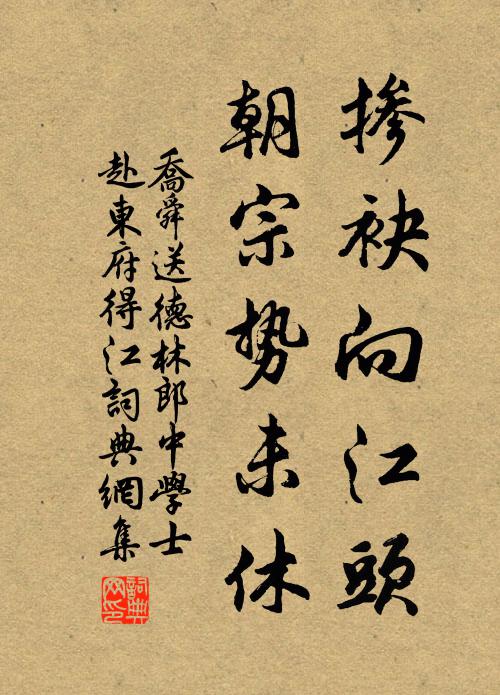 掺袂向江頭
朝宗勢未休
喬舜送德林郎中學士
赴東府得江詞典網集
詞典
网印